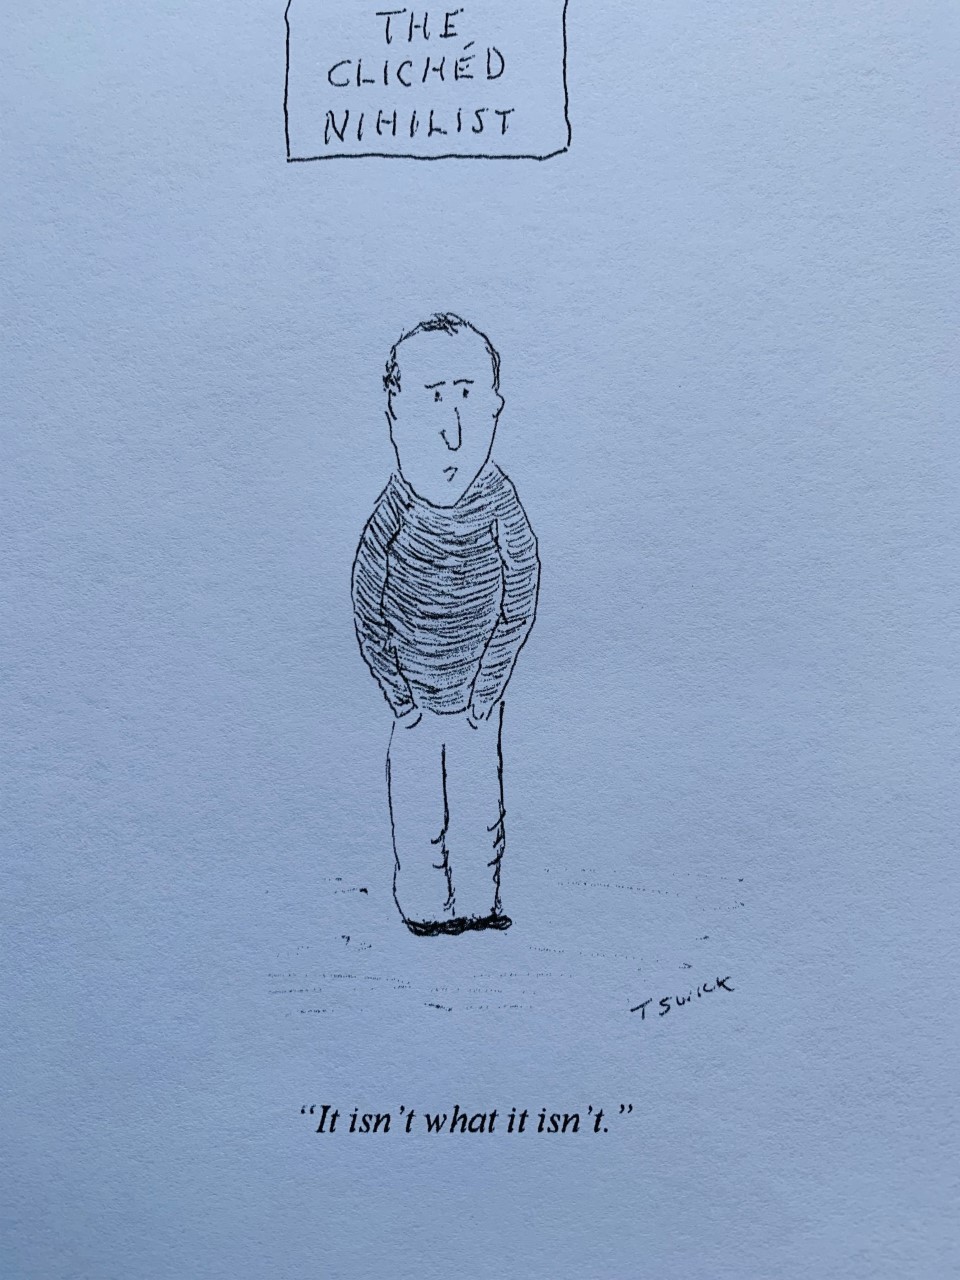 THE
CLICHÉD
NIHILIST
T SWICK
“It isn’t what it isn’t.”